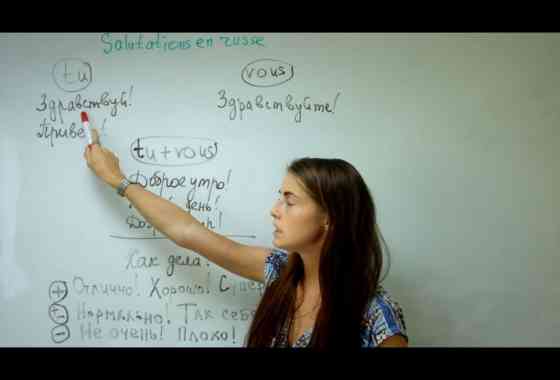 Salutations en russe
tu vous
Здравствуй! Здравствуйте!
tu + vous
Доброе утро!
Как дела?
+ Отлично! Хорошо!
± Нормально! Так себе
- Не очень! Плохо!